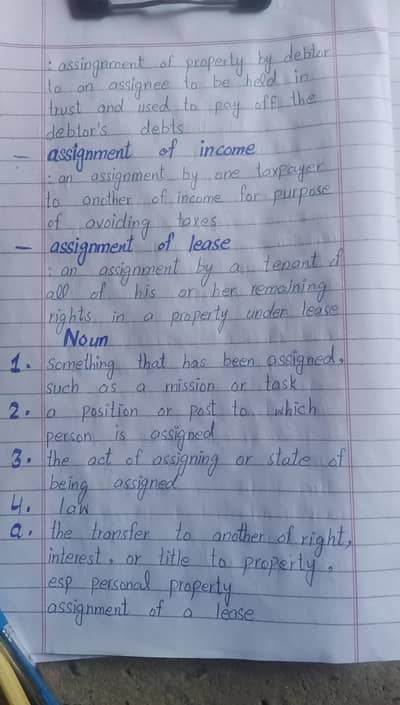 : assingnment of property by debtor
to an assignee to be held in
trust and used to pay off the
debtor's debts
– assignment of income
: an assignment by one taxpayer
to another of income for purpose
of avoiding taxes
– assignment of lease
: an assignment by a tenant of
all of his or her remaining
rights in a property under lease
Noun
1. something that has been assigned,
such as a mission or task
2. a position or post to which
person is assigned
3. the act of assigning or state of
being assigned
4. law
a. the transfer to another of right,
interest, or title to property,
esp personal property
assignment of a lease